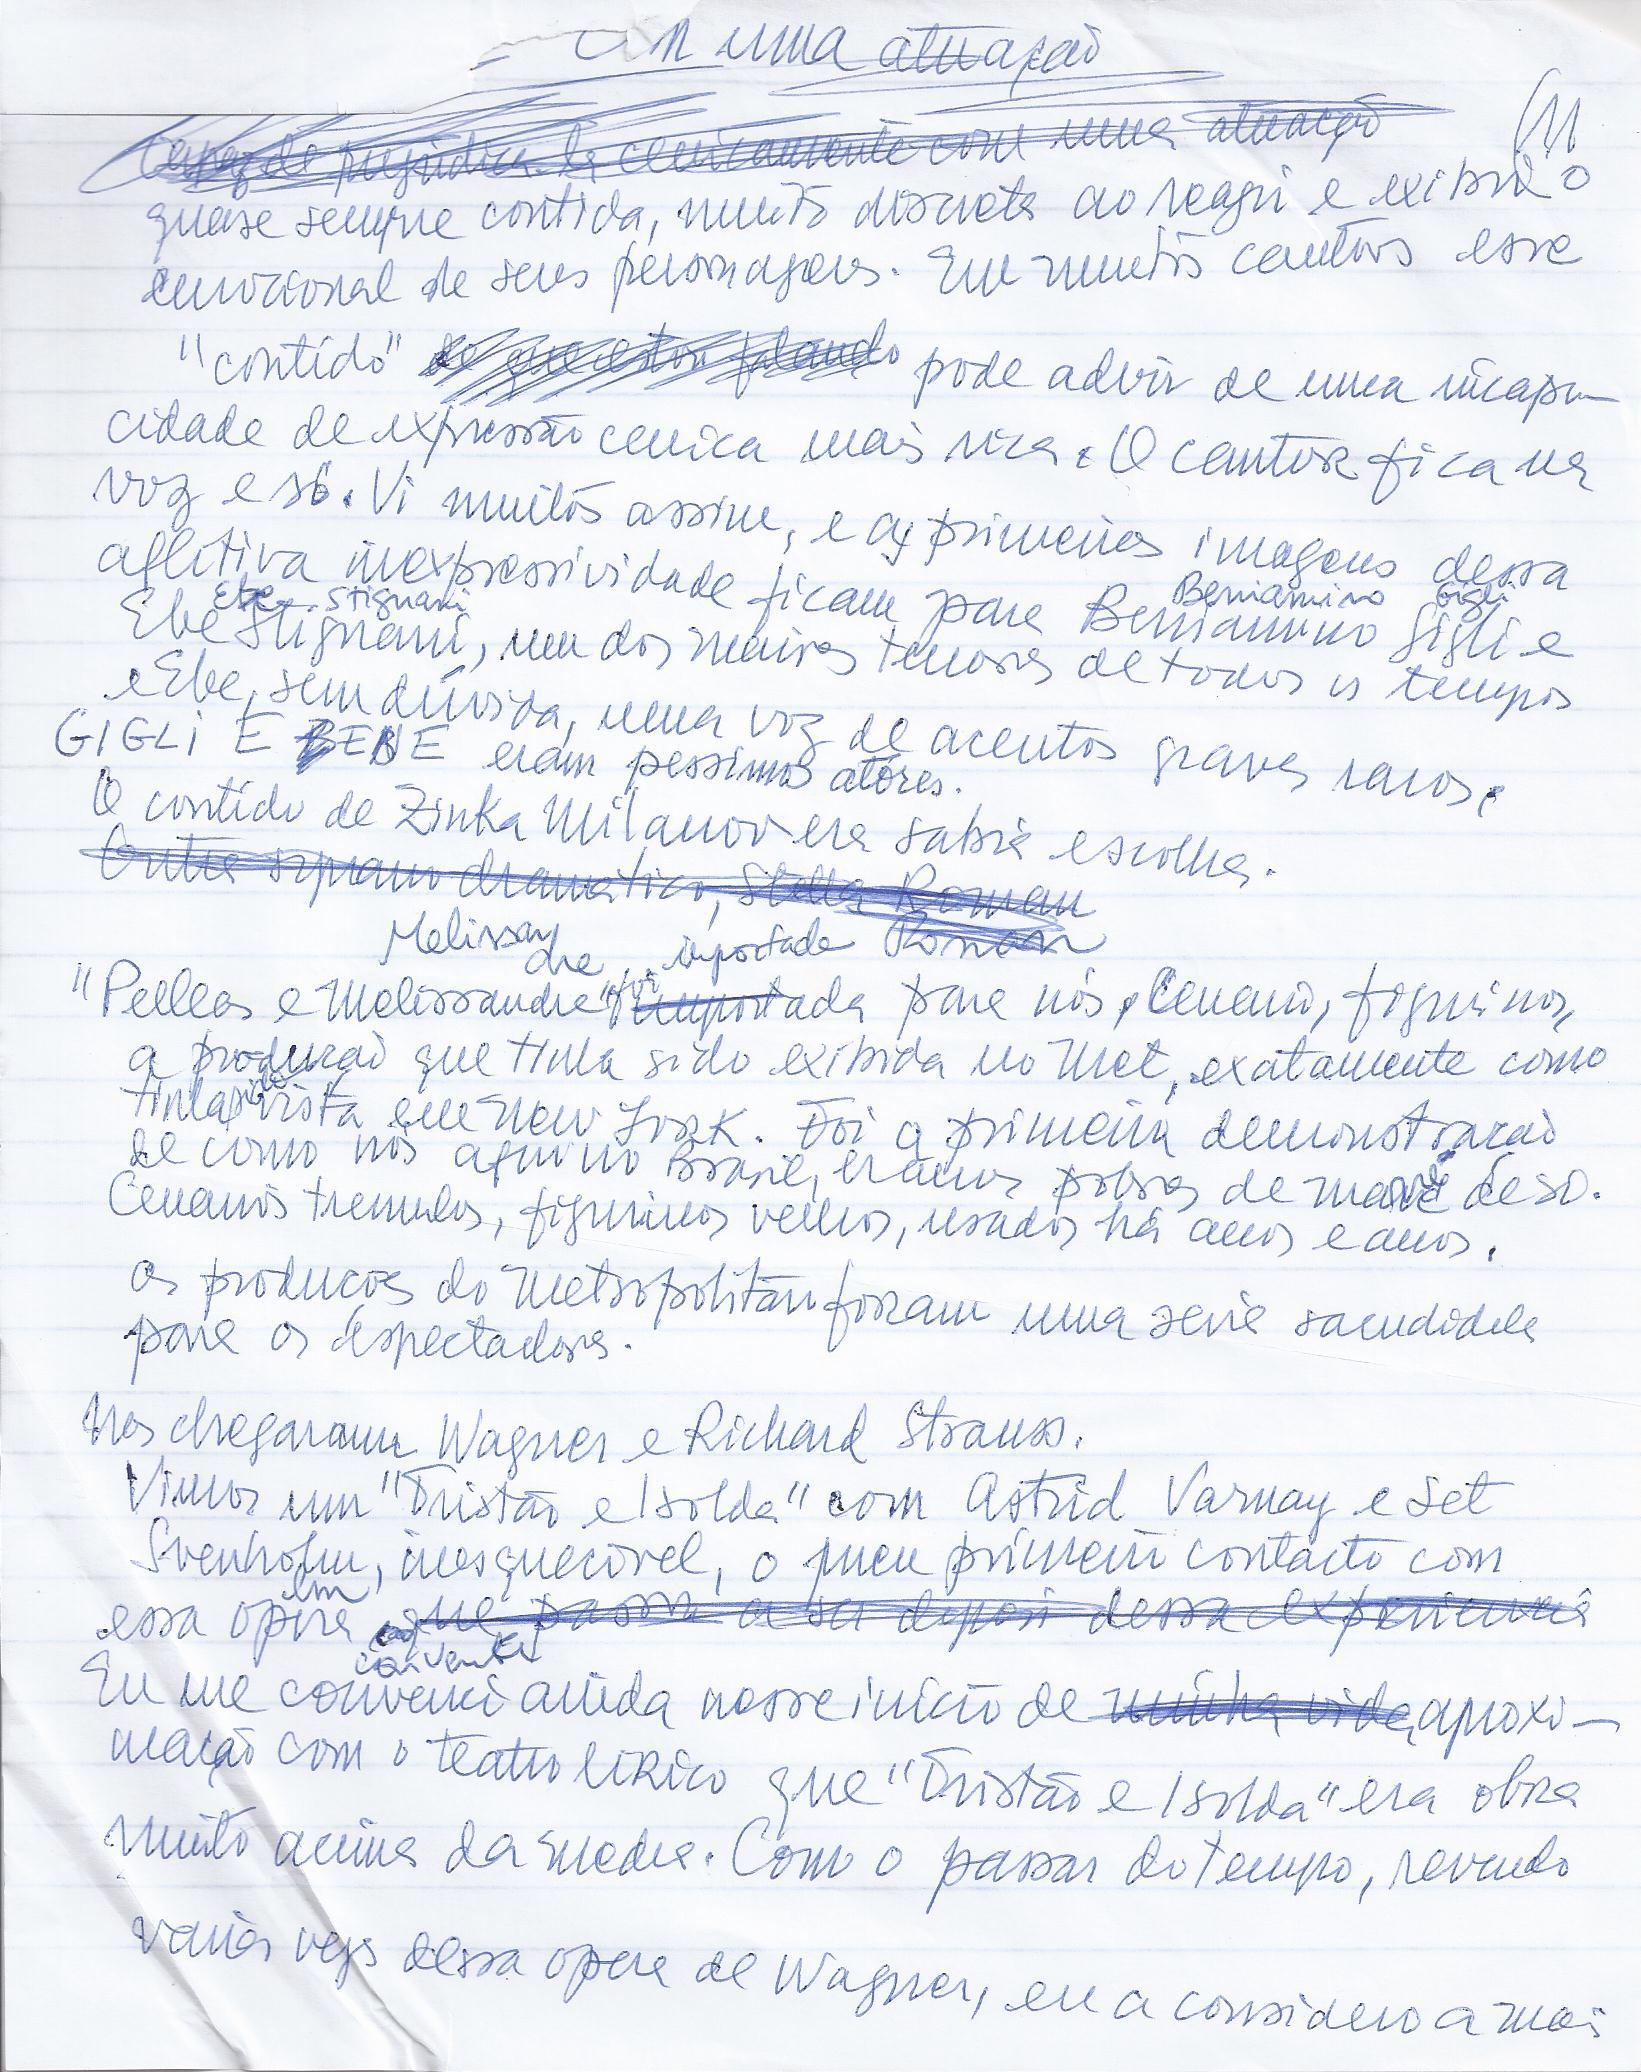 uma atuação
11
cenicamente com uma atuação
quase sempre contida, muito discreta ao reagir e exibir o
emocional de seus personagens. Em muitos cantores esse
"contido" de que estou falando pode advir de uma incapa-
cidade de expressão cenica mais rica. O cantor fica na
voz e só. Vi muitos assim, e as primeiras imagens dessa
aflitiva inexpressividade ficam para Beniamino Gigli e
Ebe Stignani Beniamino Gigli
Ebe Stignani, um dos maiores tenores de todos os tempos
e Ebe, sem dúvida, uma voz de acentos graves raros.
GIGLI E EBE eram pessimos atores.
O contido de Zinka Milanov era sabia escolha.
Outra soprano dramatico, Stella Roman
Melissan
dre foi importada Roman
"Pelleas e Melissandre" importada para nós. Cenario, figurinos,
a produção que tinha sido exibida no Met, exatamente como
tinha sido vista em New York. Foi a primeira demonstração
de como nós aqui no Brasil, eramos pobres de marré deso.
Cenarios tremulos, figurinos velhos, usados há anos e anos.
As produções do Metropolitan foram uma serie sacudidela
para os espectadores.
Nos chegaram Wagner e Richard Strauss.
Vimos um "Tristão e Isolda" com Astrid Varnay e Set
Svenholm, inesquecivel, o meu primeiro contacto com
em
essa opera que passa a ser depois dessa experiencia
convenci
Eu me convenci ainda nesse inicio de minha vida aproxi-
mação com o teatro lirico que "Tristão e Isolda" era obra
muito acima da media. Como o passar do tempo, revendo
varias vezes dessa opera de Wagner, eu a considero a mais